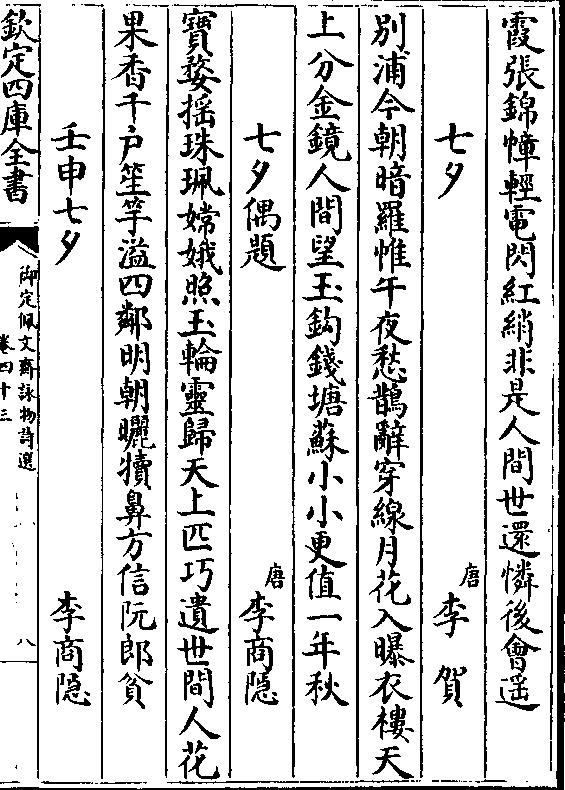 霞張錦幛輕電閃紅綃非是人間世還憐後㑹遥
七夕 唐 李賀
别浦今朝暗羅帷午夜愁鵲辭穿線月花入曝衣樓天
上分金鏡人間望玉鈎錢塘蘇小小更值一年秋
七夕偶題 唐 李商隠
寳婺揺珠珮嫦娥照玉輪靈歸天上匹巧遺世間人花
果香千户笙竽溢四鄰明朝曬犢鼻方信阮郎貧
壬申七夕 李商隠
欽定四庫全書
御定佩文齋詠物詩選
卷四十三
八